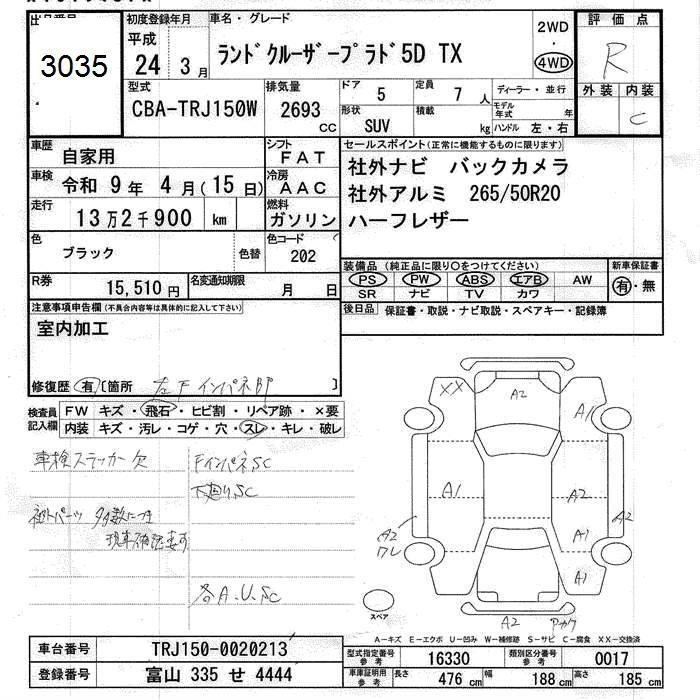 出品番号 初度登録年月 車名・グレード 2WD 評価点
3035 平成 24 3 月 ランドクルーザープラド5D TX 4WD R
型式 排気量 ドア 5 定員 7 人 ディーラー・並行 外装 内装
CBA-TRJ150W 2693 cc 形状 SUV 積載 kg モデル年式 年 C
ハンドル 左・右
車歴 自家用 シフト FAT セールスポイント(正常に機能するものに限ります)
車検 令和 9年 4月(15日) 冷房 AAC 社外ナビ バックカメラ
走行 13万2千900 km 燃料 ガソリン 社外アルミ 265/50R20
ハーフレザー
色 ブラック 色替 色コード 202
装備品(純正品に限り○をつけてください) 新車保証書
R券 15,510円 名変通知期限 月 日 PS PW ABS エアB AW 有・無
SR ナビ TV カワ
注意事項申告欄(不具合内容等は具体的に記入して下さい) 後日品 保証書・取説・ナビ取説・スペアキー・記録簿
室内加工
修復歴 有 [箇所 左Fインパネ部 ]
検査員記入欄 FW キズ・飛石・ヒビ割・リペア跡・×要
内装 キズ・汚レ・コゲ・穴・スレ・キレ・破レ
車検ステッカー欠 FインパネSC
下廻りSC
社外パーツ多数につき
現車確認要す
各A.U.SC
XX A2 A1
A1 A2
A2 ワレ A1 A2
A1
スペア A2
A-キズ E-エクボ U-凹み W-補修跡 S-サビ C-腐食 XX-交換済
車台番号 TRJ150-0020213 型式指定番号 参考 16330 類別区分番号 参考 0017
登録番号 富山 335 せ 4444 車庫証明用 参考 長さ 476 cm 幅 188 cm 高さ 185 cm